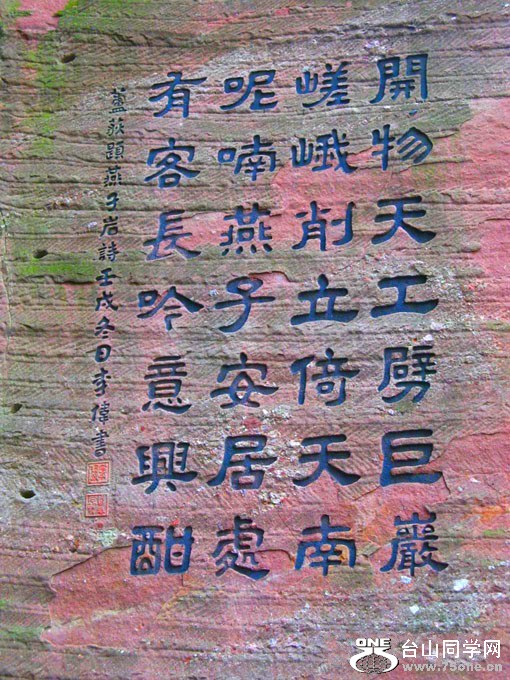 開物天工劈巨巖
嵯峨削立倚天南
呢喃燕子安居處
有客長吟意興酣
蘆荻題燕子岩詩壬戌冬日李偉書
ONE 台山同学网
www.75one.cn